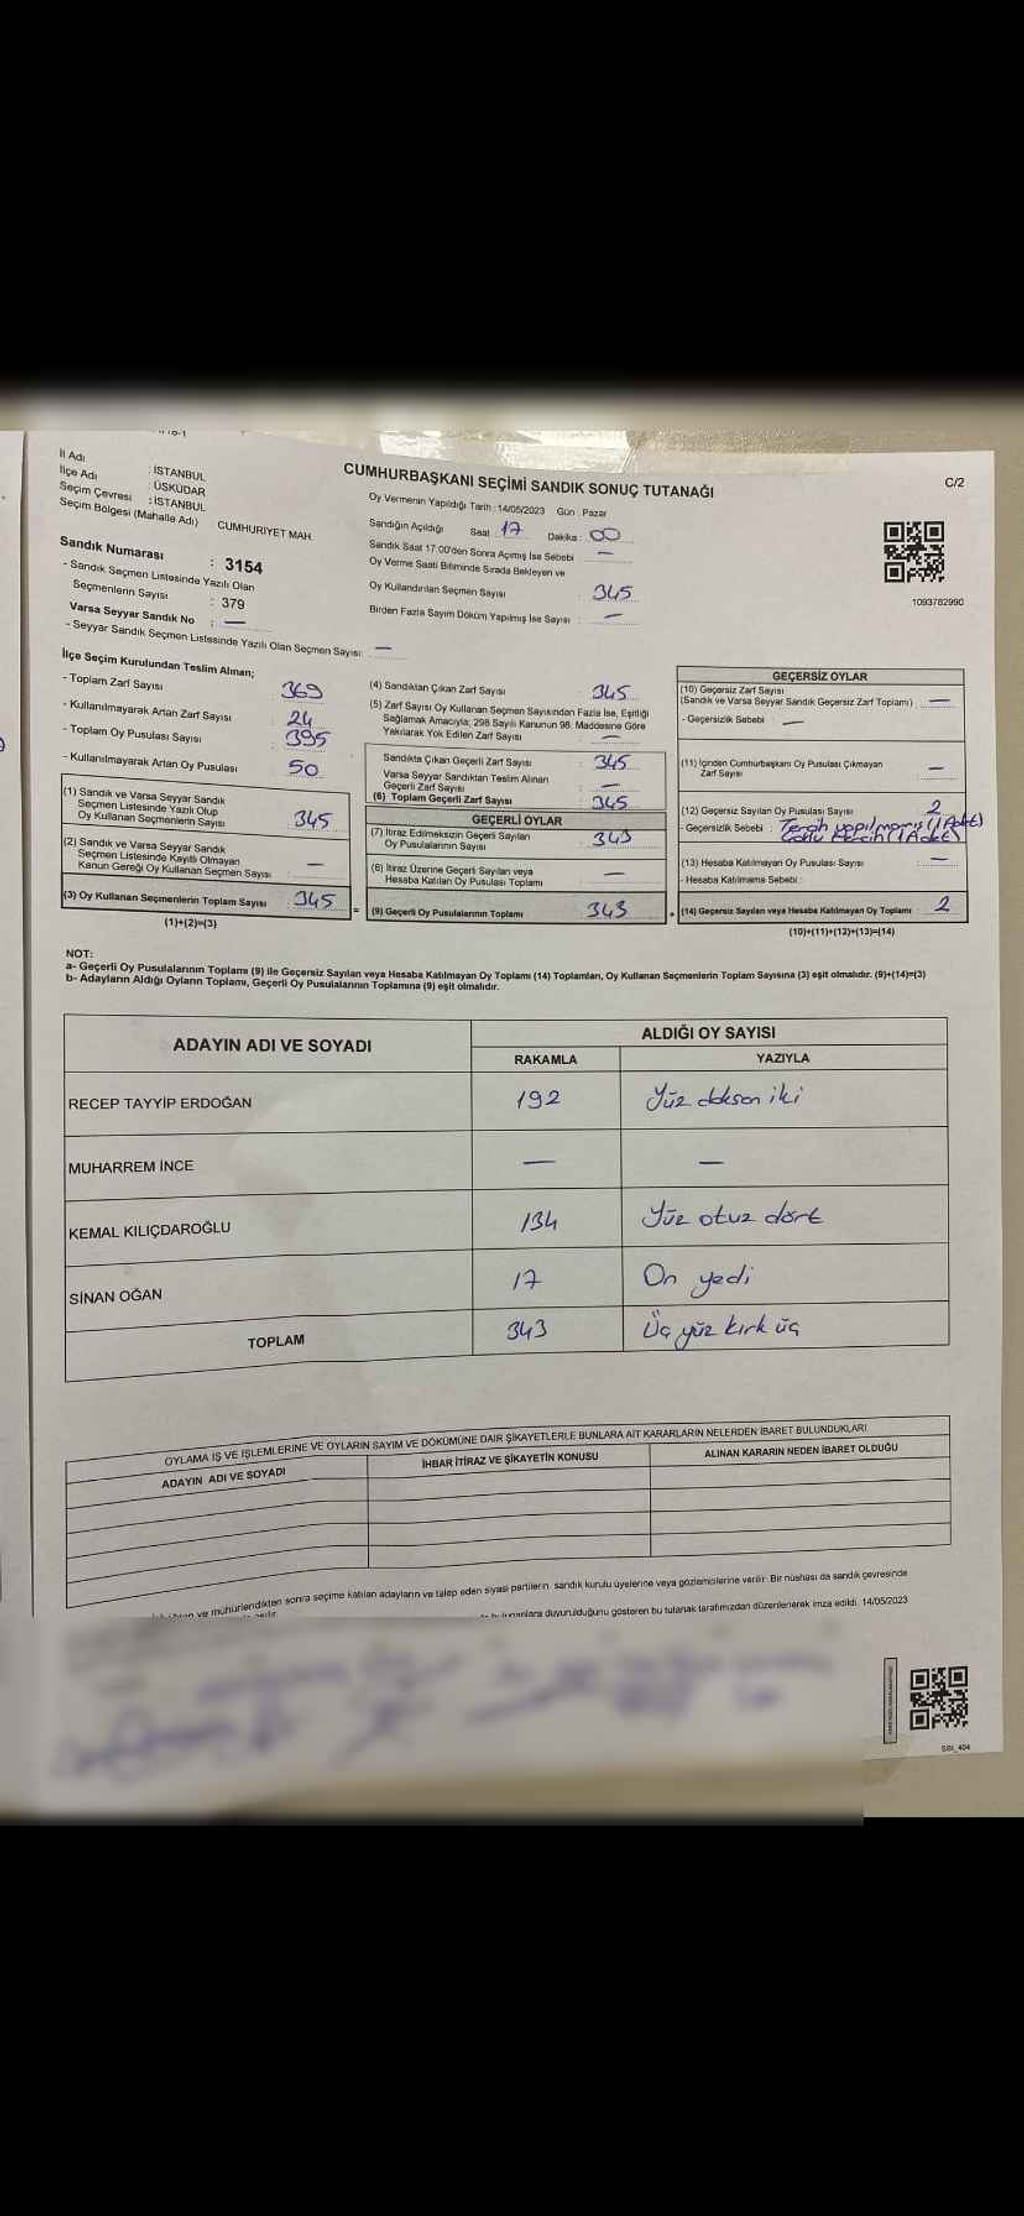 İl Adı : İSTANBUL
İlçe Adı : ÜSKÜDAR
Seçim Çevresi : İSTANBUL
Seçim Bölgesi (Mahalle Adı) CUMHURİYET MAH.
Sandık Numarası : 3154
- Sandık Seçmen Listesinde Yazılı Olan
Seçmenlerin Sayısı : 379
Varsa Seyyar Sandık No : —
- Seyyar Sandık Seçmen Listesinde Yazılı Olan Seçmen Sayısı: —
CUMHURBAŞKANI SEÇİMİ SANDIK SONUÇ TUTANAĞI
Oy Vermenin Yapıldığı Tarih : 14/05/2023 Gün : Pazar
Sandığın Açıldığı Saat 17 Dakika : 00
Sandık Saat 17.00'den Sonra Açımış İse Sebebi —
Oy Verme Saati Bitiminde Sırada Bekleyen ve
Oy Kullandırılan Seçmen Sayısı : 345
Birden Fazla Sayım Döküm Yapılmış İse Sayısı : —
C/2
1093782990
İlçe Seçim Kurulundan Teslim Alınan;
- Toplam Zarf Sayısı : 369
- Kullanılmayarak Artan Zarf Sayısı : 24
- Toplam Oy Pusulası Sayısı : 395
- Kullanılmayarak Artan Oy Pusulası : 50
(1) Sandık ve Varsa Seyyar Sandık
Seçmen Listesinde Yazılı Olup
Oy Kullanan Seçmenlerin Sayısı : 345
(2) Sandık ve Varsa Seyyar Sandık
Seçmen Listesinde Kayıtlı Olmayan
Kanun Gereği Oy Kullanan Seçmen Sayısı : —
(3) Oy Kullanan Seçmenlerin Toplam Sayısı : 345
(1)+(2)=(3)
(4) Sandıktan Çıkan Zarf Sayısı : 345
(5) Zarf Sayısı Oy Kullanan Seçmen Sayısından Fazla İse, Eşitliği
Sağlamak Amacıyla; 298 Sayılı Kanunun 98. Maddesine Göre
Yakılarak Yok Edilen Zarf Sayısı : —
Sandıkta Çıkan Geçerli Zarf Sayısı : 345
Varsa Seyyar Sandıktan Teslim Alınan
Geçerli Zarf Sayısı : —
(6) Toplam Geçerli Zarf Sayısı : 345
GEÇERLİ OYLAR
(7) İtiraz Edilmeksizin Geçerli Sayılan
Oy Pusulalarının Sayısı : 343
(8) İtiraz Üzerine Geçerli Sayılan veya
Hesaba Katılan Oy Pusulası Toplamı : —
= (9) Geçerli Oy Pusulalarının Toplamı 343
GEÇERSİZ OYLAR
(10) Geçersiz Zarf Sayısı
(Sandık ve Varsa Seyyar Sandık Geçersiz Zarf Toplamı) : —
- Geçersizlik Sebebi : —
(11) İçinden Cumhurbaşkanı Oy Pusulası Çıkmayan
Zarf Sayısı : —
(12) Geçersiz Sayılan Oy Pusulası Sayısı : 2
- Geçersizlik Sebebi : Tercih yapılmamış (1 Adet)
(1 Adet)
(13) Hesaba Katılmayan Oy Pusulası Sayısı : —
- Hesaba Katılmama Sebebi :
+ (14) Geçersiz Sayılan veya Hesaba Katılmayan Oy Toplamı : 2
(10)+(11)+(12)+(13)=(14)
NOT:
a- Geçerli Oy Pusulalarının Toplamı (9) ile Geçersiz Sayılan veya Hesaba Katılmayan Oy Toplamı (14) Toplamları, Oy Kullanan Seçmenlerin Toplam Sayısına (3) eşit olmalıdır. (9)+(14)=(3)
b- Adayların Aldığı Oyların Toplamı, Geçerli Oy Pusulalarının Toplamına (9) eşit olmalıdır.
ADAYIN ADI VE SOYADI ALDIĞI OY SAYISI
RAKAMLA YAZIYLA
RECEP TAYYİP ERDOĞAN 192 Yüz doksan iki
MUHARREM İNCE — —
KEMAL KILIÇDAROĞLU 134 Yüz otuz dört
SİNAN OĞAN 17 On yedi
TOPLAM 343 Üç yüz kırk üç
OYLAMA İŞ VE İŞLEMLERİNE VE OYLARIN SAYIM VE DÖKÜMÜNE DAİR ŞİKAYETLERLE BUNLARA AİT KARARLARIN NELERDEN İBARET BULUNDUKLARI
ADAYIN ADI VE SOYADI İHBAR İTİRAZ VE ŞİKAYETİN KONUSU ALINAN KARARIN NEDEN İBARET OLDUĞU
ve mühürlendikten sonra seçime katılan adayların ve talep eden siyasi partilerin, sandık kurulu üyelerine veya gözlemcilerine verilir. Bir nüshası da sandık çevresinde
duyurulduğunu gösteren bu tutanak tarafımızdan düzenlenerek imza edildi. 14/05/2023